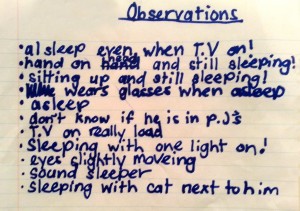 Observations
• alsleep even when T.V on!
• hand on head and still sleeping!
• sitting up and still sleeping!
• wears glasses when asleep
• asleep
• don't know if he is in p.J's
• T.V on really load
• Sleeping with one light on!
• eyes slightly moveing
• sound sleeper
• sleeping with cat next to him